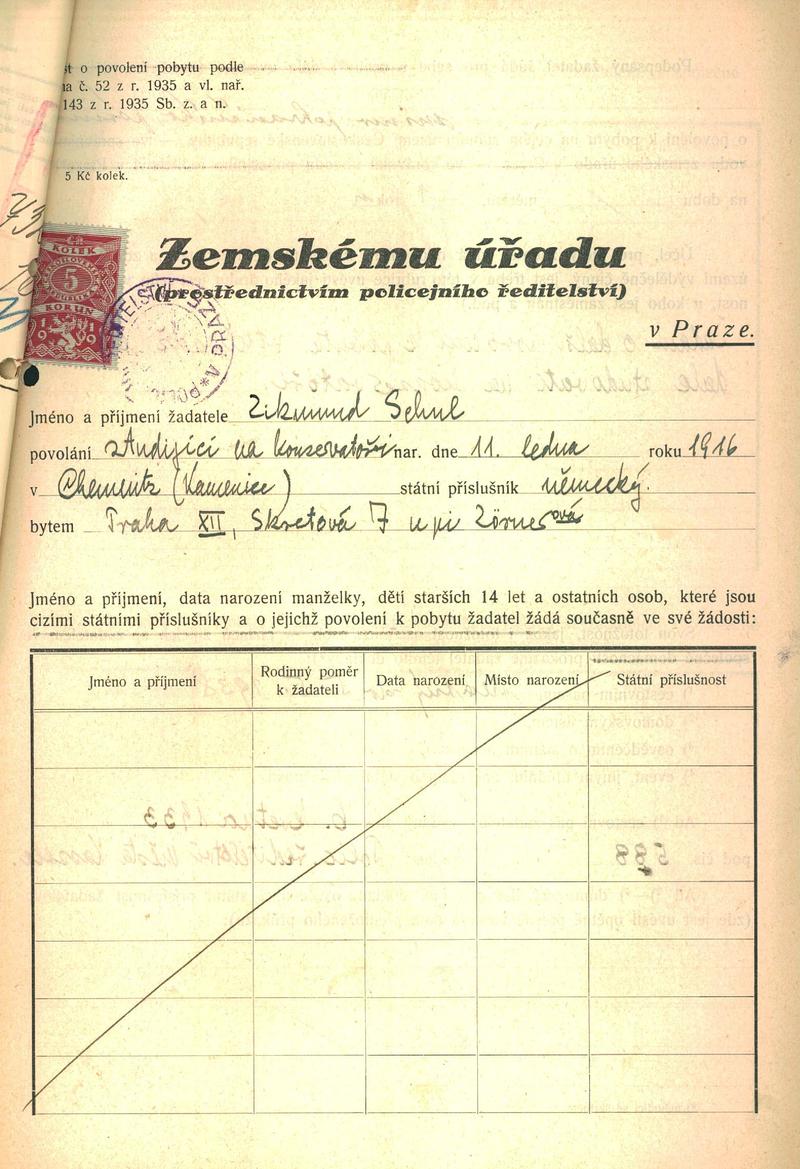 st o povolení pobytu podle
na č. 52 z r. 1935 a vl. nař.
143 z r. 1935 Sb. z. a n.
5 Kč kolek.
KOLEK
5
KORUN
1919
Zemskému úřadu
(prostřednictvím policejního ředitelství)
v Praze.
Jméno a příjmení žadatele Zikmund Schul
povolání studující na konservatoři nar. dne 11. ledna roku 1916
v Chemnitz (Kamenice) státní příslušník německý.
bytem Praha XII, Skretová 7 u pí Zörnerová
Jméno a příjmení, data narození manželky, dětí starších 14 let a ostatních osob, které jsou
cizími státními příslušníky a o jejichž povolení k pobytu žadatel žádá současně ve své žádosti:
Jméno a příjmení Rodinný poměr k žadateli Data narození Místo narození Státní příslušnost